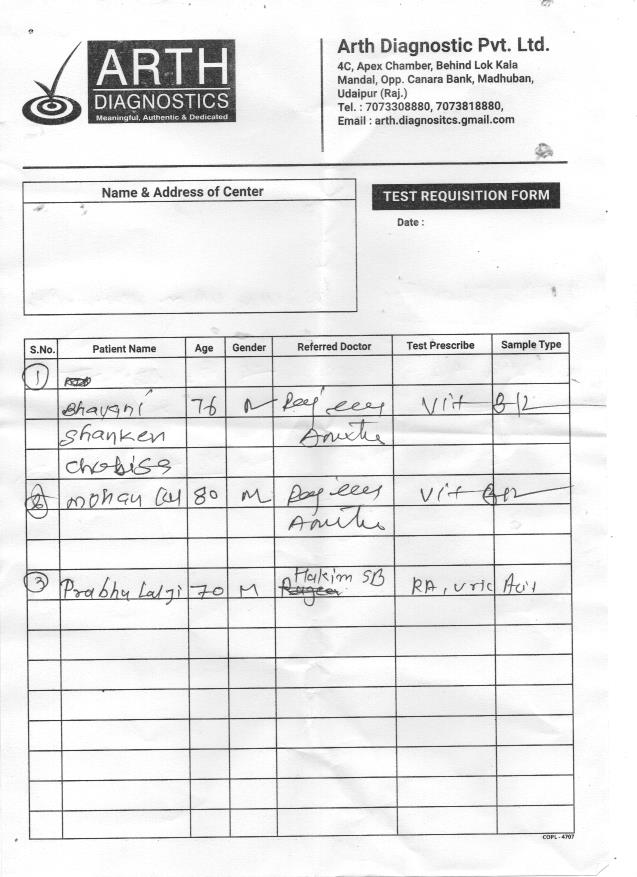 ARTH
DIAGNOSTICS
Meaningful, Authentic & Dedicated
Arth Diagnostic Pvt. Ltd.
4C, Apex Chamber, Behind Lok Kala
Mandal, Opp. Canara Bank, Madhuban,
Udaipur (Raj.)
Tel. : 7073308880, 7073818880,
Email : arth.diagnositcs.gmail.com
Name & Address of Center
TEST REQUISITION FORM
Date :
S.No. Patient Name Age Gender Referred Doctor Test Prescribe Sample Type
1
Bhavani 76 M Vit B12
Shanker
Chobisa
2 Mohan Lal 80 M Vit B12
3 Prabhu Lalji 70 M Hakim SB RA, Uric Acid
COPL - 4707